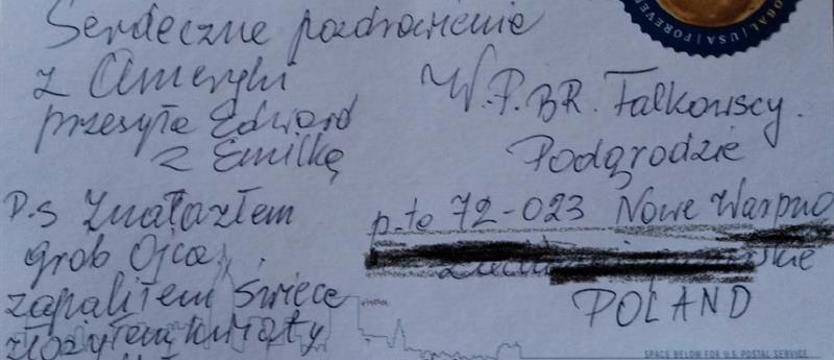 Serdeczne pozdrowienie
z Ameryki
przesyła Edward
z Emilką
P.S Znalazłem
grob Ojca
zapaliłem świece
złożyłem kwiaty
GLOBAL | USA | FOREVER
W.P. BR. Falkowscy.
Podgrodzie
p-ta 72-023 Nowe Warpno
POLAND
SPACE BELOW FOR U.S. POSTAL SERVICE